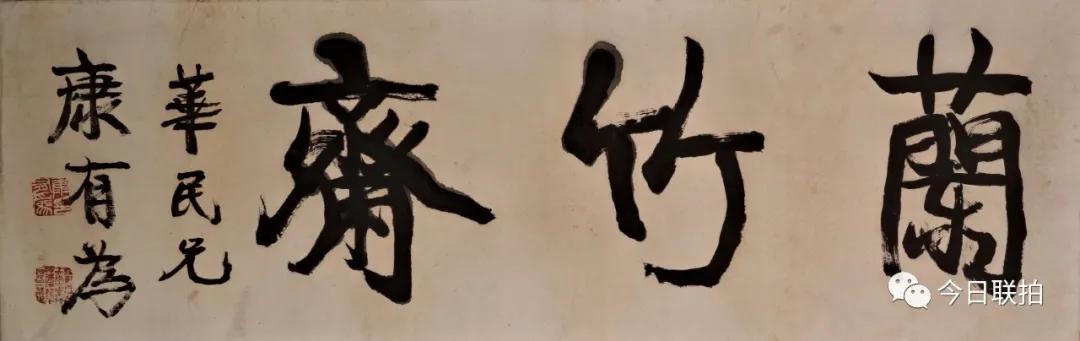 蘭竹齋
華民兄
康有為
今日联拍